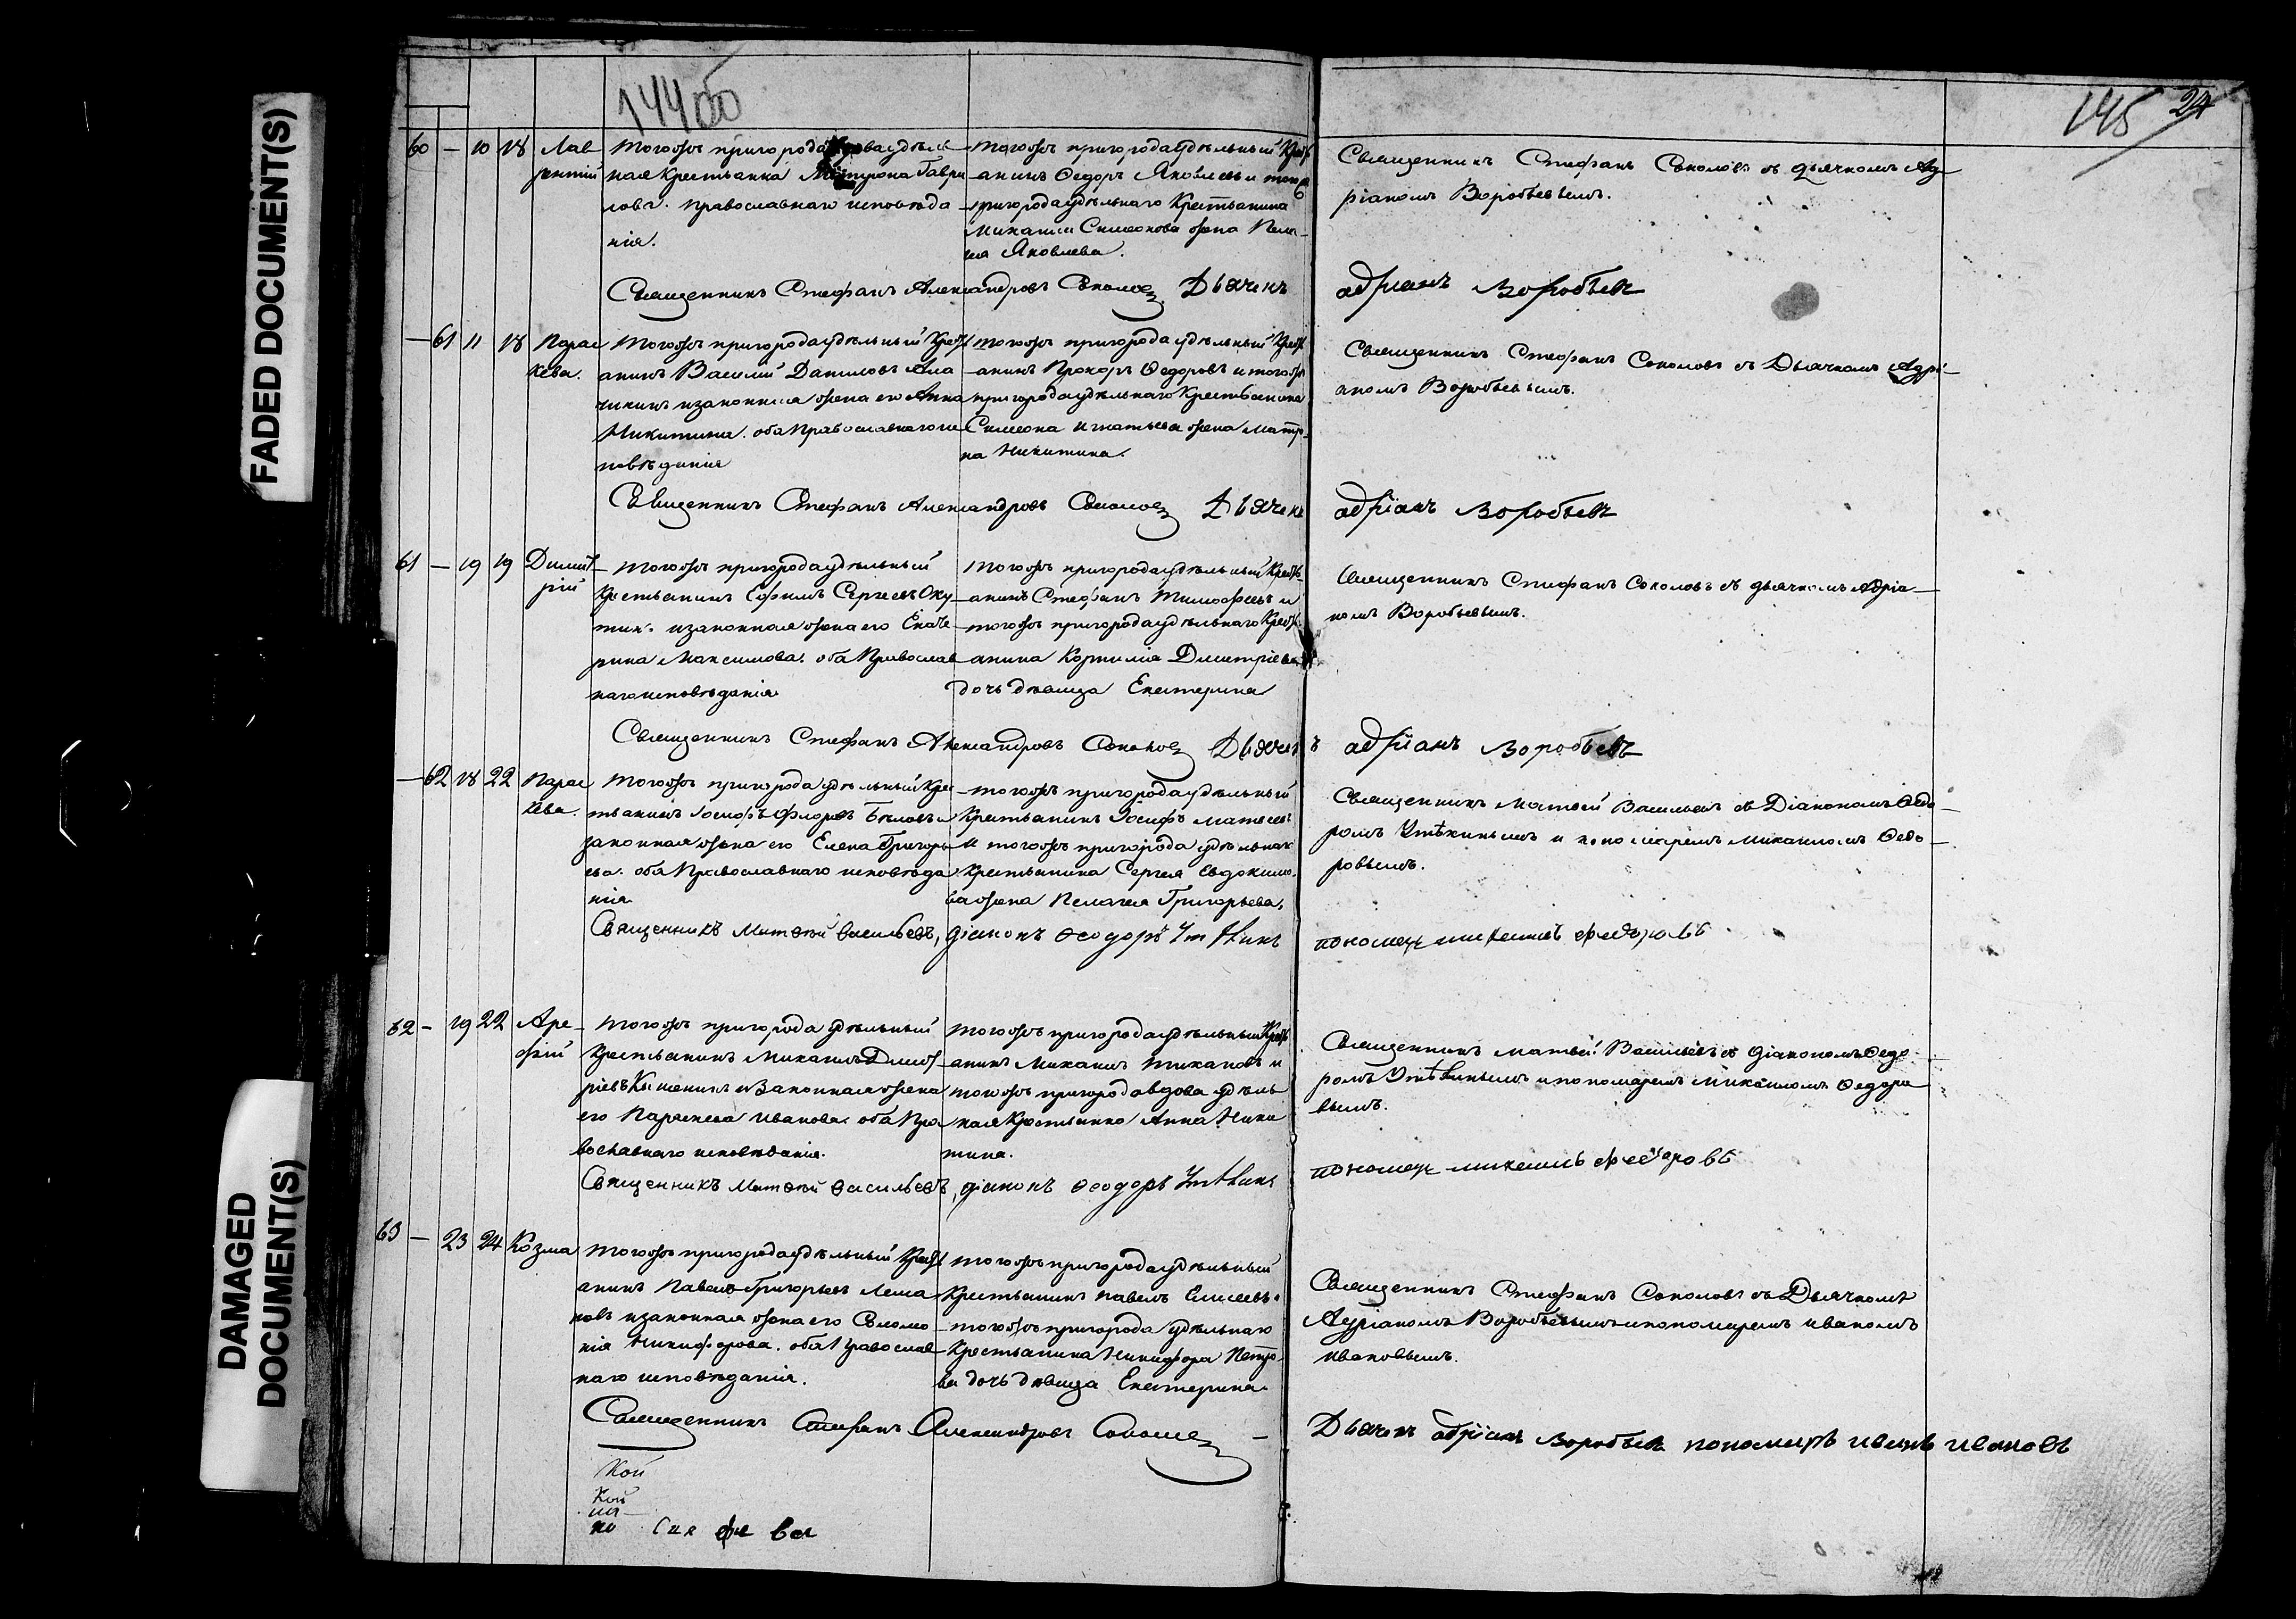 FADED DOCUMENT(S)
DAMAGED
DOCUMENT(S)
144 об
145
24
60 — 10 18 Лав
рентій
Тогожъ пригорода вдова удѣль
ная Крестьянка Матрона Гаври
лова. православнаго исповѣда
нія.
Тогожъ пригорода удѣльный Крест
анинъ Ѳедоръ Яковлевъ и тогожъ
пригорода удѣльнаго Крестьянина
Михаила Симеонова жена Пела
гія Яковлева.
Священникъ Стефанъ Соколовъ съ дьячкомъ Ад
ріаномъ Воробьевымъ.
Священникъ Стефанъ Александровъ Соколовъ Дьячекъ адрианъ Воробьевъ
— 61 11 18 Парас
кева.
Тогожъ пригорода удѣльный Крест
анинъ Василій Даниловъ
и законная жена его Анна
Никитина. оба Православнаго ис
повѣданія
Тогожъ пригорода удѣльный Крест
анинъ Прохоръ Ѳедоровъ и тогожъ
пригорода удѣльнаго Крестьянина
Симеона Игнатьева жена Матро
на Никитина.
Священникъ Стефанъ Соколовъ съ Дьячкомъ Адрі
аномъ Воробьевымъ.
Священникъ Стефанъ Александровъ Соколовъ Дьячекъ адріанъ Воробьевъ
61 — 19 19 Димит
рій
Тогожъ пригорода удѣльный
Крестьянинъ Сергеевъ Оку
тин. и законная жена его Екате
рина Максимова. оба Православ
наго исповѣданія
Тогожъ пригорода удѣльный Крест
анинъ Стефанъ Тимофеевъ и
тогожъ пригорода удѣльнаго Крест
анина Корнилія Дмитріева
дочь дѣвица Екатерина
Священникъ Стефанъ Соколовъ съ дьячкомъ Адріа
номъ Воробьевымъ.
Священникъ Стефанъ Александровъ Соколовъ Дьячекъ адріанъ Воробьевъ
— 62 18 22 Парас
кева.
Тогожъ пригорода удѣльный Крес
тьанинъ Іосифъ Флоровъ Бѣловъ и
законная жена его Елена Григорь
ева. оба Православнаго исповѣда
нія
Тогожъ пригорода удѣльный
Крестьянинъ Іосифъ Матвеевъ
и тогожъ пригорода удѣльнаго
Крестьянина Сергея Евдокимо
ва жена Пелагея Григорьева.
Священникъ Матвей Васильевъ съ Діакономъ Ѳедо
ромъ Утѣхинымъ и пономаремъ Михаиломъ Ѳедо
ровымъ.
Священникъ Матѳей Васильевъ, діаконъ Ѳеодоръ Утѣхинъ пономарь михаилъ федоровъ
62 — 19 22 Аре
фій
Тогожъ пригорода удѣльный
Крестьянинъ Михаилъ Дмит
ріевъ и Законная жена
его Параскева Иванова. оба Пра
вославнаго исповѣданія.
Тогожъ пригорода удѣльный Крест
анинъ Михаилъ и
тогожъ пригорода вдова удѣль
ная Крестьянка Анна Ники
тина.
Священникъ Матвей Васильевъ съ діакономъ Ѳедо
ромъ Утѣхинымъ и пономаремъ Михаиломъ Ѳедоро
вымъ.
Священникъ Матѳей Васильевъ, діаконъ Ѳеодоръ Утѣхинъ пономарь михаилъ федоровъ
63 — 23 24 Козма
Тогожъ пригорода удѣльный Крест
анинъ Павелъ Григорьевъ Леша
ковъ и законная жена его Соломо
нія Никифорова. оба Православ
наго исповѣданія.
Тогожъ пригорода удѣльный
Крестьянинъ Павелъ Елисеевъ и
тогожъ пригорода удѣльнаго
Крестьянина Никифора Петро
ва дочь дѣвица Екатерина
Священникъ Стефанъ Соколовъ съ Дьячкомъ
Адріаномъ Воробьевымъ и пономаремъ Иваномъ
Ивановымъ.
Священникъ Стефанъ Александровъ Соколовъ — Дьячекъ адріанъ Воробьевъ пономарь иванъ ивановъ
Кой
Кой
на
по